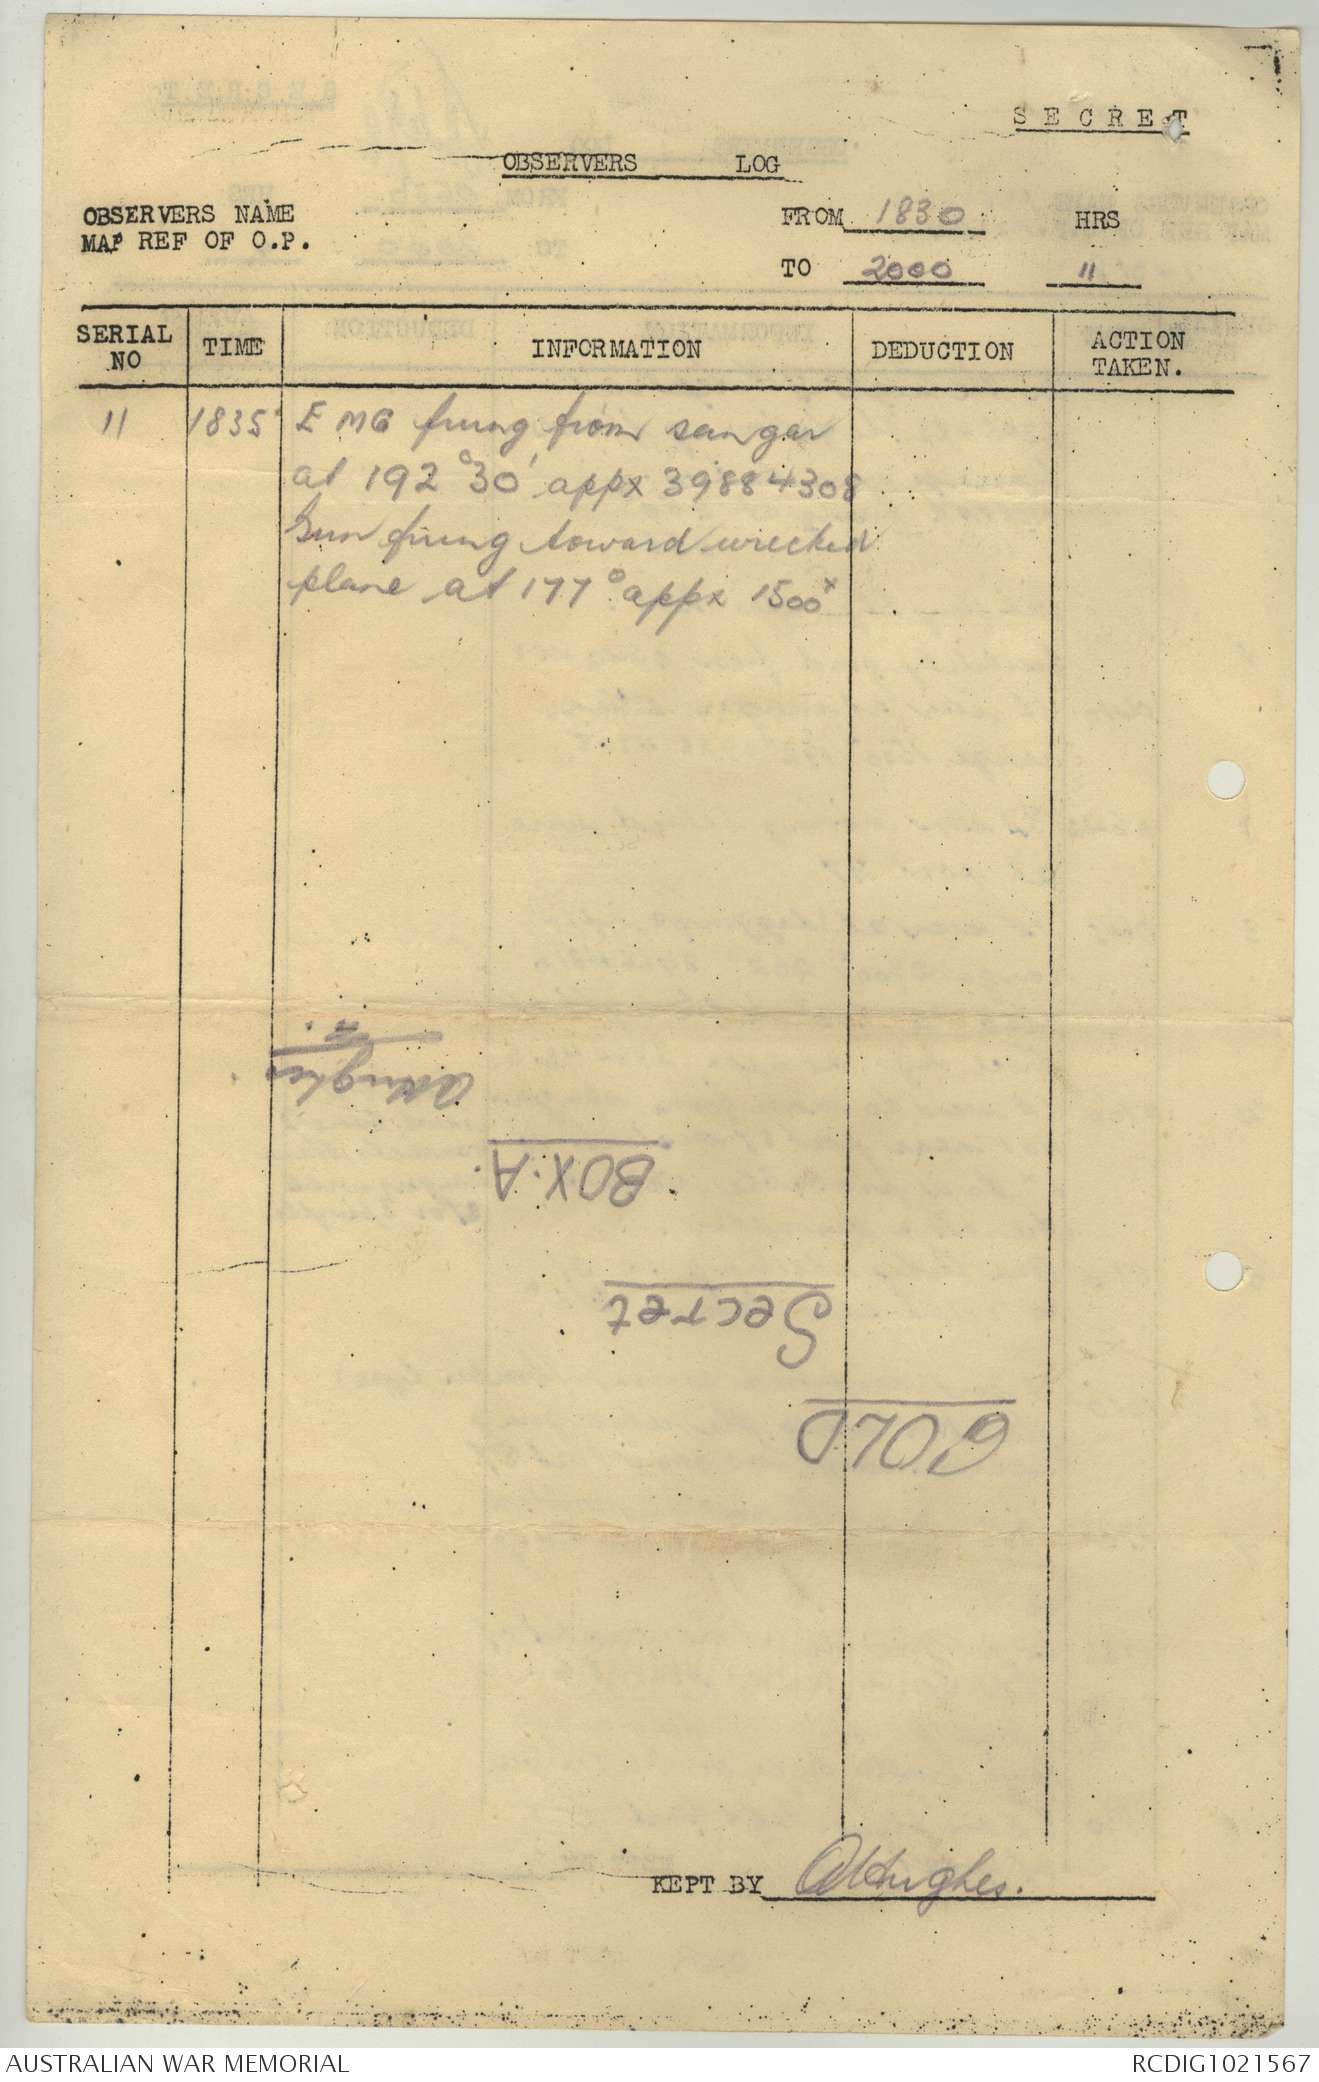 SECRET
OBSERVERS LOG
OBSERVERS NAME FROM 1830 HRS
MAP REF OF O.P.
TO 2000 "
SERIAL NO TIME INFORMATION DEDUCTION ACTION TAKEN.
11 1835 E MG firing from sangar
at 192°30' appx 39884308
Gun firing toward wrecked
plane at 177° appx 1500x
AHughes
BOX.A.
Secret
GOLD
KEPT BY AHughes.
AUSTRALIAN WAR MEMORIAL RCDIG1021567